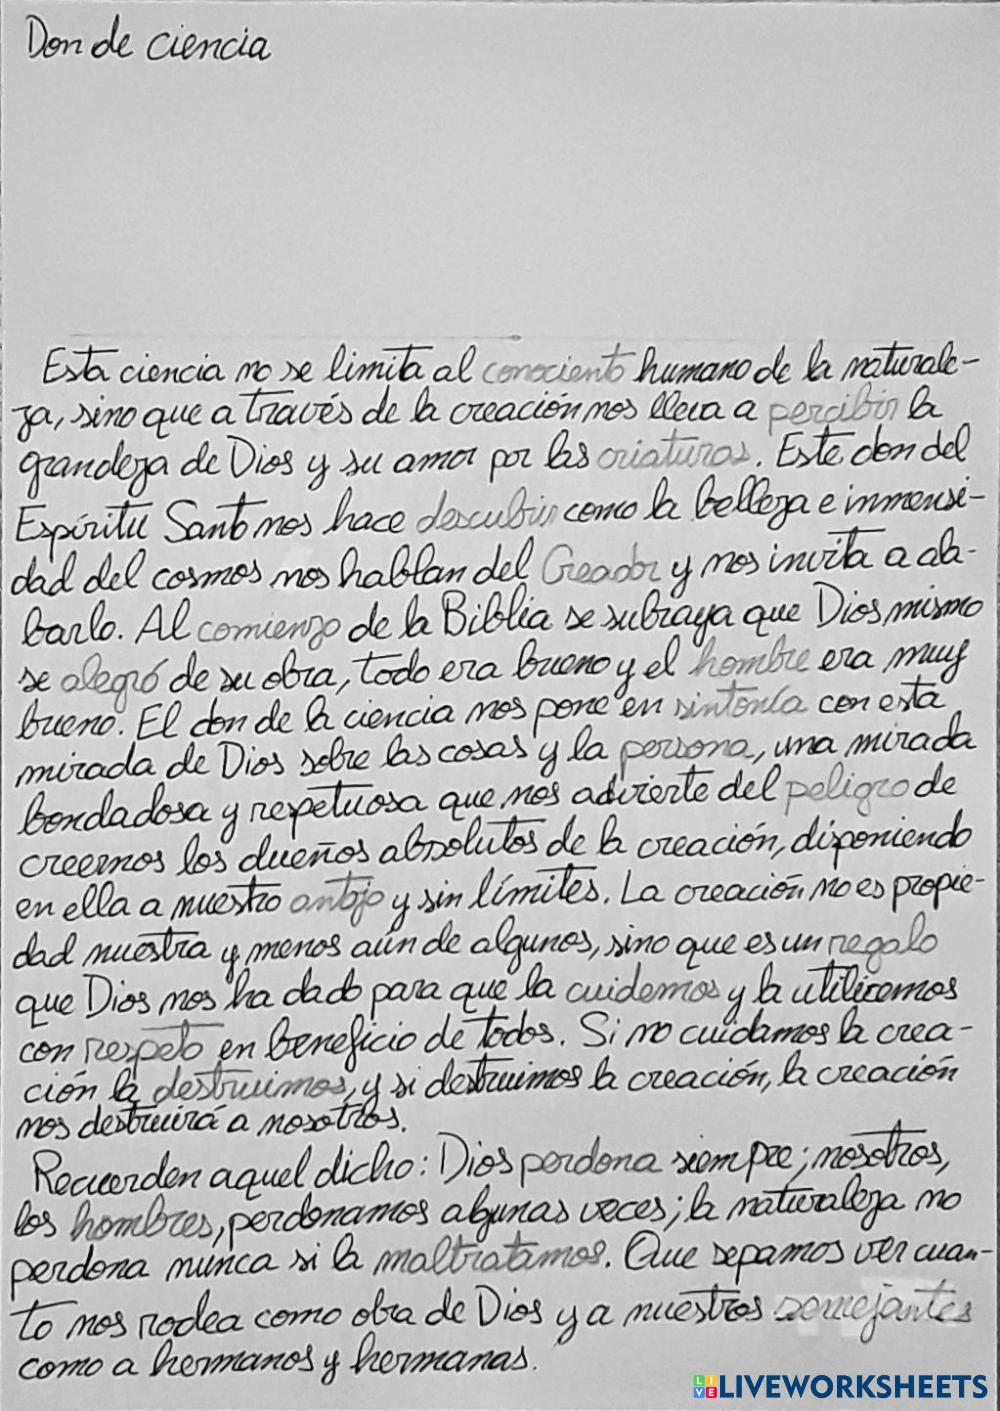 Don de ciencia
Esta ciencia no se limita al conociento humano de la naturale-
za, sino que a través de la creación nos lleva a percibir la
grandeza de Dios y su amor por las criaturas. Este don del
Espíritu Santo nos hace descubrir como la belleza e inmensi-
dad del cosmos nos hablan del Creador y nos invita a ala-
barlo. Al comienzo de la Biblia se subraya que Dios mismo
se alegró de su obra, todo era bueno y el hombre era muy
bueno. El don de la ciencia nos pone en sintonía con esta
mirada de Dios sobre las cosas y la persona, una mirada
bondadosa y respetuosa que nos advierte del peligro de
creernos los dueños absolutos de la creación, disponiendo
en ella a nuestro antojo y sin límites. La creación no es propie-
dad nuestra y menos aún de algunos, sino que es un regalo
que Dios nos ha dado para que la cuidemos y la utilicemos
con respeto en beneficio de todos. Si no cuidamos la crea-
ción la destruimos, y si destruimos la creación, la creación
nos destruirá a nosotros.
Recuerden aquel dicho: Dios perdona siempre; nosotros,
los hombres, perdonamos algunas veces; la naturaleza no
perdona nunca si la maltratamos. Que sepamos ver cuan-
to nos rodea como obra de Dios y a nuestros semejantes
como a hermanos y hermanas.
LIVEWORKSHEETS